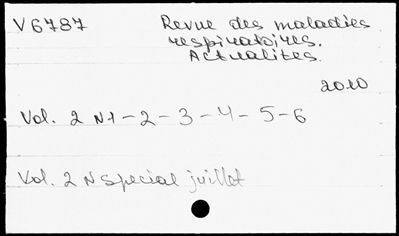 V6787 Revue des maladies
respiratoires.
Actualites.
2010
Vol. 2 N1-2-3-4-5-6
Vol. 2 N special juillet